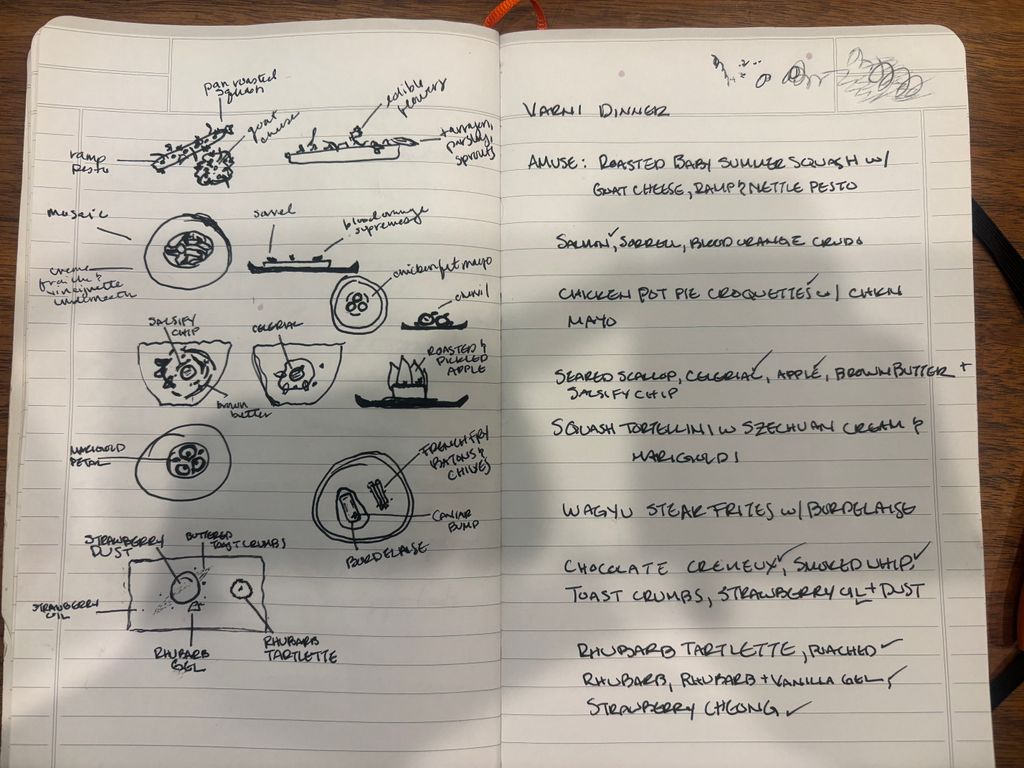 pan roasted
squash
goat
cheese
ramp
pesto
edible
flowers
tarragon,
parsley,
sprouts
mosaic
creme
fraiche &
vinaigrette
underneath
sorrel
blood orange
supremes
chicken fat mayo
chervil
SALSIFY
CHIP
brown
butter
CELERIAC
ROASTED &
PICKLED
APPLE
MARIGOLD
PETAL
FRENCH FRY
BATONS &
CHIVES
CAVIAR
BUMP
BORDELAISE
STRAWBERRY
DUST
BUTTERED
TOAST CRUMBS
STRAWBERRY
OIL
RHUBARB
GEL
RHUBARB
TARTLETTE
VARNI DINNER
AMUSE: ROASTED BABY SUMMER SQUASH w/
GOAT CHEESE, RAMP & NETTLE PESTO
SALMON ✓, SORRELL, BLOOD ORANGE CRUDO
CHICKEN POT PIE CROQUETTES ✓ w/ CHKN
MAYO
SEARED SCALLOP, CELERIAC ✓, APPLE ✓, BROWN BUTTER +
SALSIFY CHIP
SQUASH TORTELLINI w SZECHUAN CREAM &
MARIGOLD
WAGYU STEAK FRITES w/ BORDELAISE
CHOCOLATE CREMEUX ✓, SMOKED WHIP ✓
TOAST CRUMBS, STRAWBERRY OIL ✓ + DUST
RHUBARB TARTLETTE, POACHED ✓
RHUBARB, RHUBARB + VANILLA GEL ✓,
STRAWBERRY CHEONG ✓